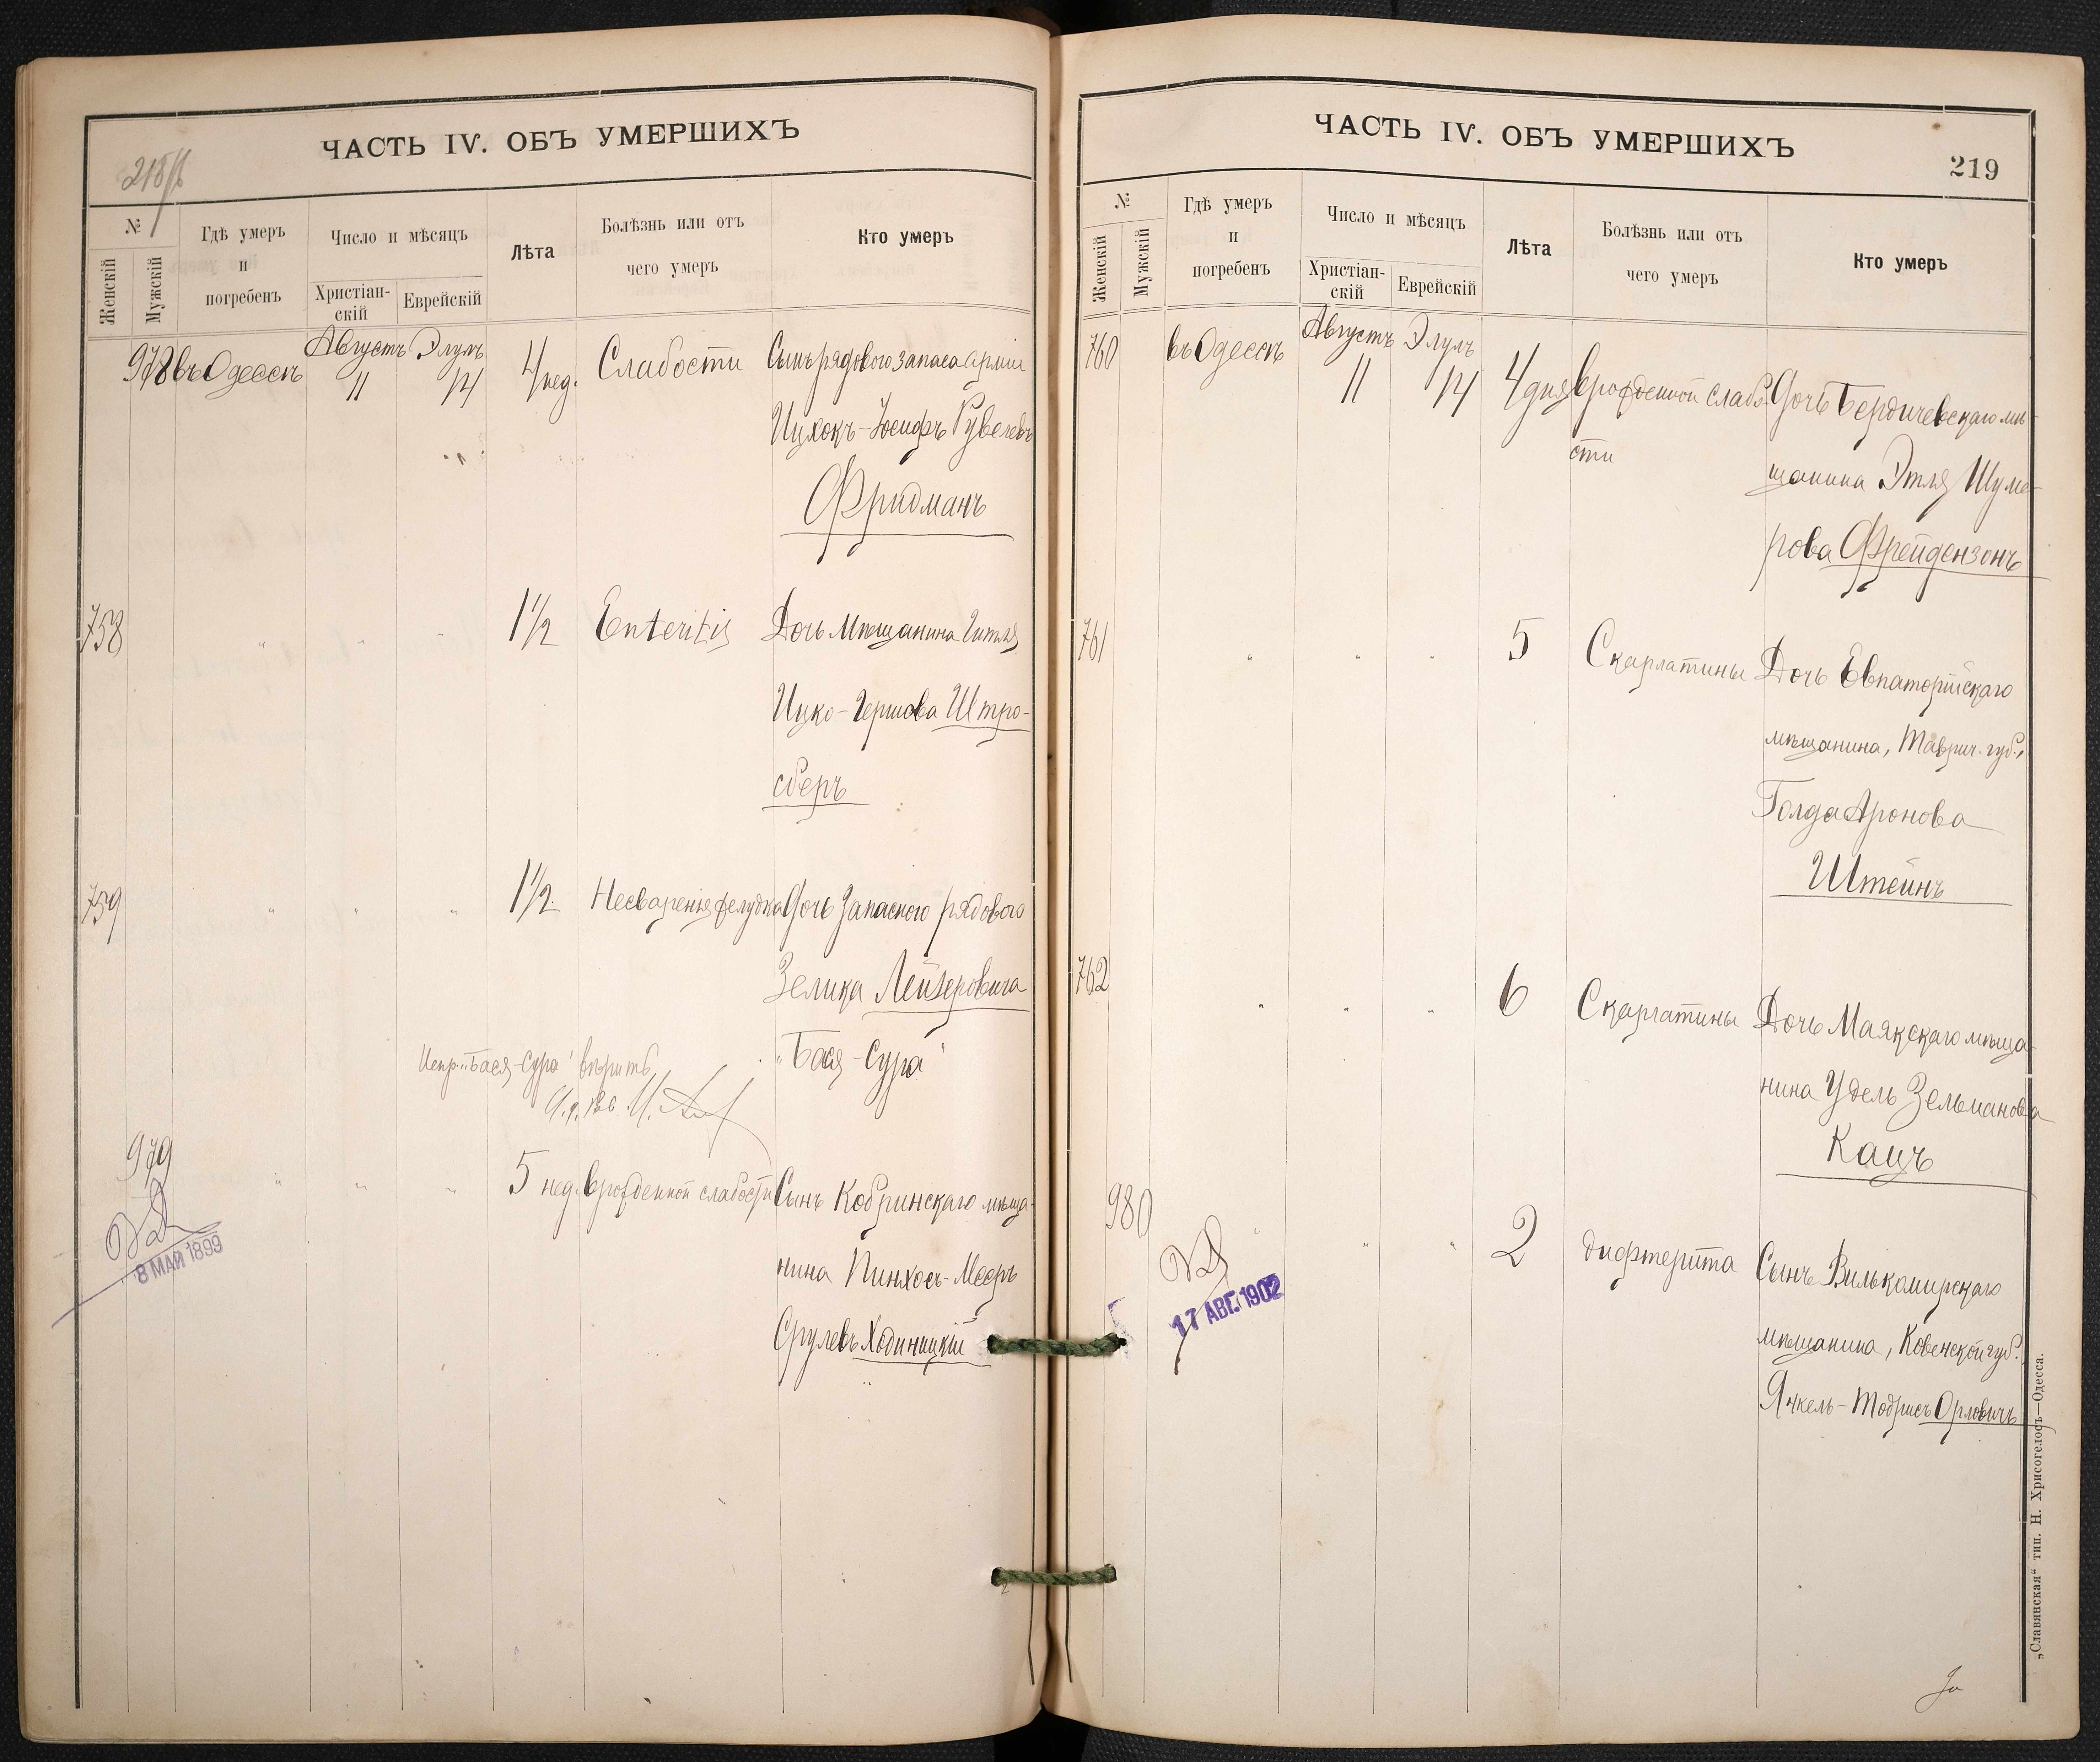 ЧАСТЬ IV. ОБЪ УМЕРШИХЪ
№
Женскій
Мужскій
Гдѣ умеръ
и
погребенъ
Число и мѣсяцъ
Христіан-
скій
Еврейскій
Лѣта
Болѣзнь или отъ
чего умеръ
Кто умеръ
978 въ Одессѣ Августъ 11 Элулъ 14 4 нед. Слабости Сынъ рядового запаса арміи
Ицхокъ-Іосифъ Рувелевъ
Фридманъ
758 " " " 1½ Enteritis Дочь мѣщанина Гитля
Ицко-Гершова Штро-
сберъ
759 " " " 1½ Несваренія желудка Дочь запасного рядового
Зелика Лейзеровича
"Бася-Сура"
Испр. "Бася-Сура" вѣрить
979 " " " 5 нед. врожденной слабости Сынъ Кобринскаго мѣща-
нина Пинхосъ-Мееръ
Срулевъ Ходиницкій
8 МАЙ 1899
ЧАСТЬ IV. ОБЪ УМЕРШИХЪ
219
№
Женскій
Мужскій
Гдѣ умеръ
и
погребенъ
Число и мѣсяцъ
Христіан-
скій
Еврейскій
Лѣта
Болѣзнь или отъ
чего умеръ
Кто умеръ
760 въ Одессѣ Августъ 11 Элулъ 14 4 дня врожденной слабо- Дочь Бердичевскаго мѣ-
сти
щанина Этля Шуме-
рова Фрейдензонъ
761 " " " 5 Скарлатины Дочь Евпаторійскаго
мѣщанина, Таврич. губ.,
Голда Аронова
Штейнъ
762 " " " 6 Скарлатины Дочь Маякскаго мѣща-
нина Удель Зельманова
Кацъ
980 " " " 2 дифтерита Сынъ Вилькомирскаго
мѣщанина, Ковенской губ.
Янкель-Тодрисъ Орловичъ
17 АВГ. 1902
„Славянская“ тип. Н. Хрисогелосъ—Одесса.